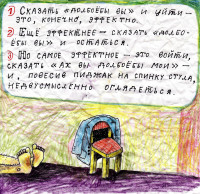 1) Сказать «долбоёбы вы» и уйти –
это, конечно, эффектно.
2) Ещё эффектнее – сказать «долбо-
ёбы вы» и остаться.
3) Но самое эффектное – это войти,
сказать «ах вы долбоёбы мои» –
и, повесив пиджак на спинку стула,
недвусмысленно оглядеться.